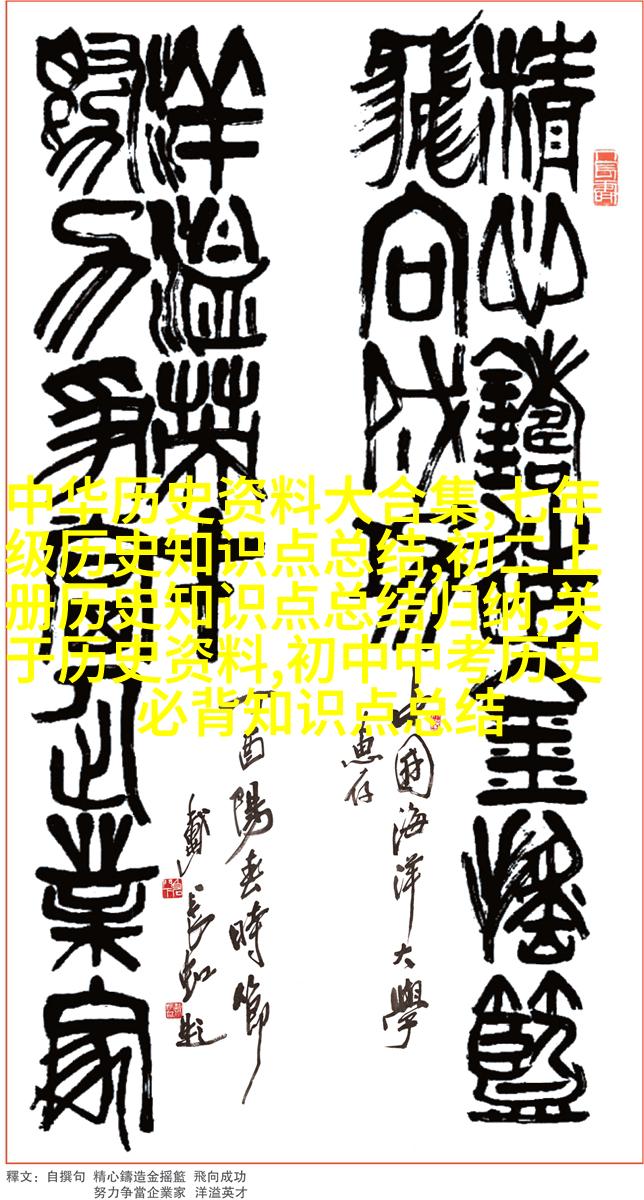 精心鑄造金摇籃
飛向成功
中國海洋大學
惠存
洋溢英才
乙酉陽春時節
戴長虹題
努力争當企業家
中华历史资料大合集,七年
级历史知识点总结,初二上
册历史知识点总结归纳,关
于历史资料,初中中考历史
必背知识点总结
釋文：自撰句 精心鑄造金摇籃 飛向成功
努力争當企業家 洋溢英才